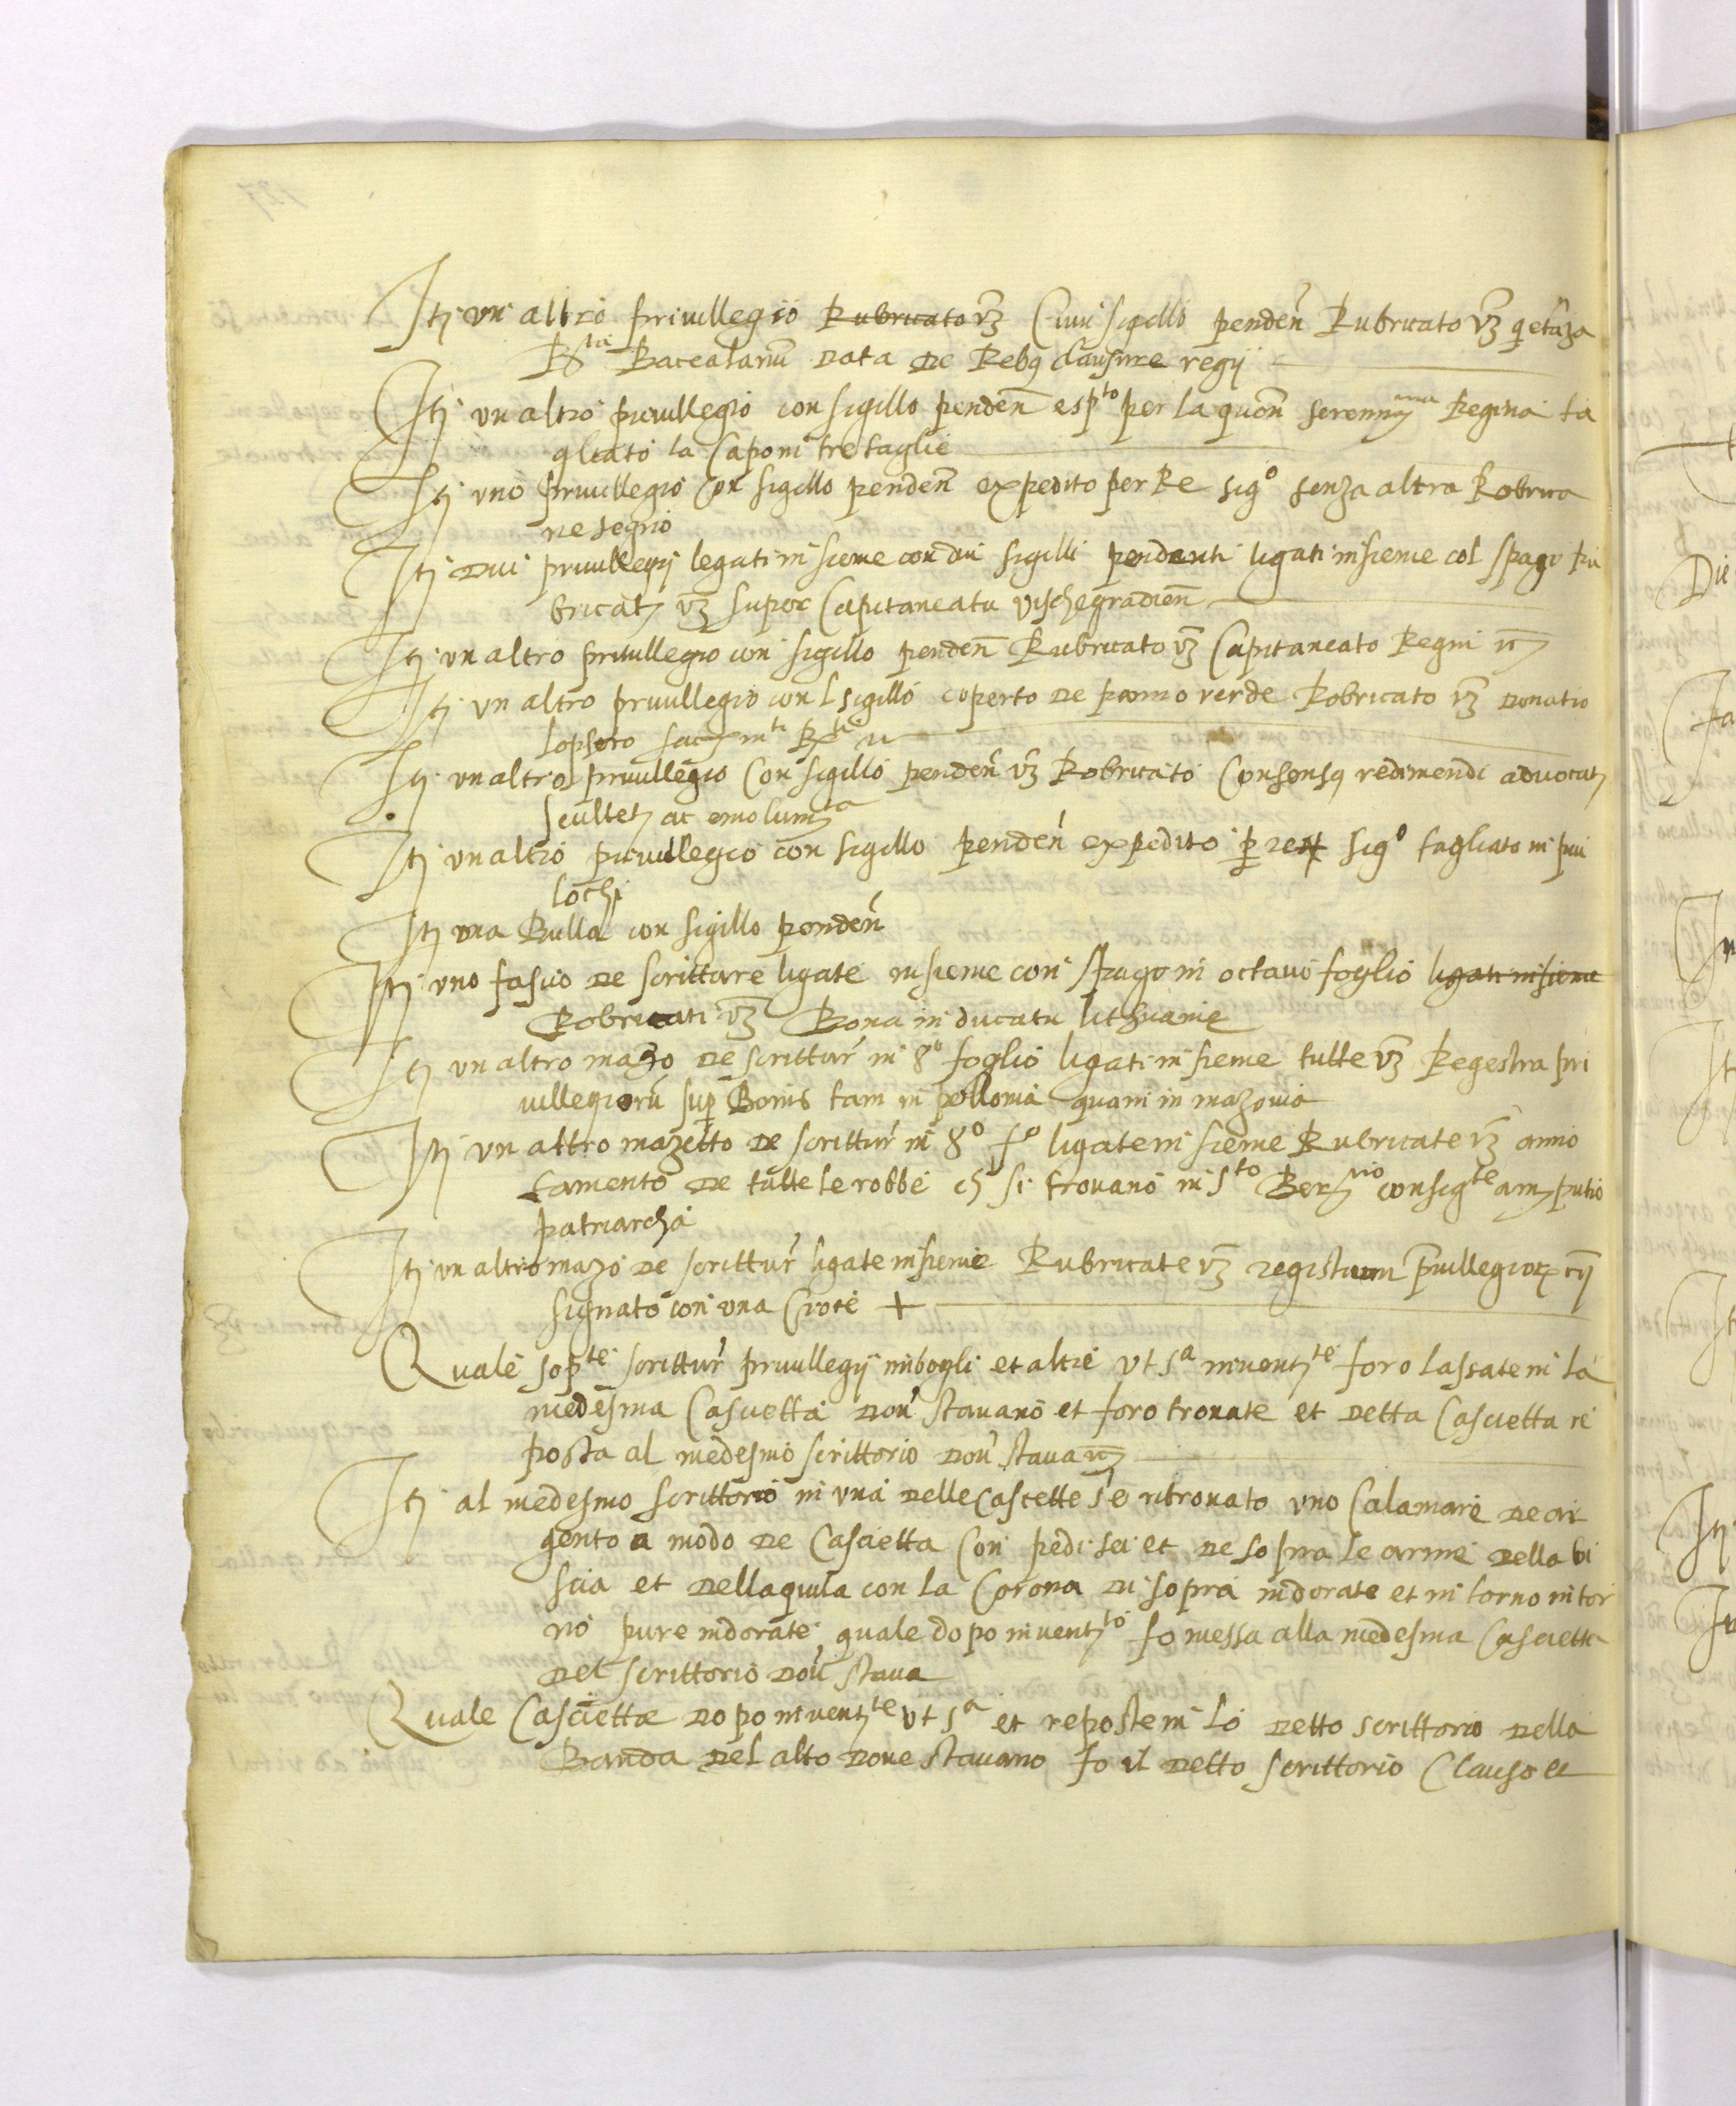 Itē un altro privillegio Rubricato vz Cum sigillo penden̄ Rubricato vz
Bacealariū data de Rebꝫ clausure regij
Itē un altro privillegio con sigillo penden̄ esp^to per la quon̄ serenn^ma Regina ta
gliato la Caponi tre taglie
Itē uno privillegio Con sigillo penden̄ expedito per Re sig^o senza altra Robrica
ne segno
Itē dui privillegij legati insieme con dui sigilli pendenti ligati insieme col spago Ru
bricatj vz super Capitaneatu vischegradien̄
Itē un altro privillegio con sigillo penden̄ Rubricato vz Capitaneato Regni
Itē un altro privillegio con l sigillo coperto de panno verde Robricato vz donatio
Itē un altro privillegio Con sigillo penden̄ vz Robricato Consensꝫ redimendi advocat
scultet ac emolum^ta
Itē un altro privillegio con sigillo penden̄ expedito p̱ re sig^o tagliato in piu
lochi
Itē una Bulla con sigillo penden̄
Itē uno fascio de scritture ligate insieme con spago in octavo foglio ligati insieme
Robricati vz Bona in ducatu lithuanie
Itē un altro mazo de scrittur̄ in 8^o foglio ligati insieme tutte vz Regestra pri
villegiorū sup̱ Bonis tam in pollonia quam in mazovia
Itē un altro mazetto de scrittur̄ in 8^o f^o ligate insieme Rubricate vz anno
tamento de tutte le robbe ch̄ si trovano in s^to Ber^no consig^te
patriarcha
Itē un altro mazo de scrittur̄ ligate insieme Rubricate vz registrum p̄villegior
signato con una Croce +
Quale sop^te scrittur̄ privillegij imbogli et altre ut s^a invent^te foro lassate in la
medesma Cascietta dov̄ stavano et foro trovate et detta Cascietta re
posta al medesmo scrittorio dov̄ stava
Itē al medesmo scrittorio in una delle Cascette s'e ritrovato uno Calamare de ar
gento a modo de Cascietta Con pedi sei et de sopra le arme della bi
scia et dell aquila con la Corona di sopra indorate et in torno in tor
no pure indorate, quale dopo invent^to fo messa alla medesma Cascietta
del scrittorio dov̄ stava
Quale Casciette dopo invent^te ut s^a et reposte in lo detto scrittorio della
Banda del alto dove stavano fo il detto scrittorio Clauso et